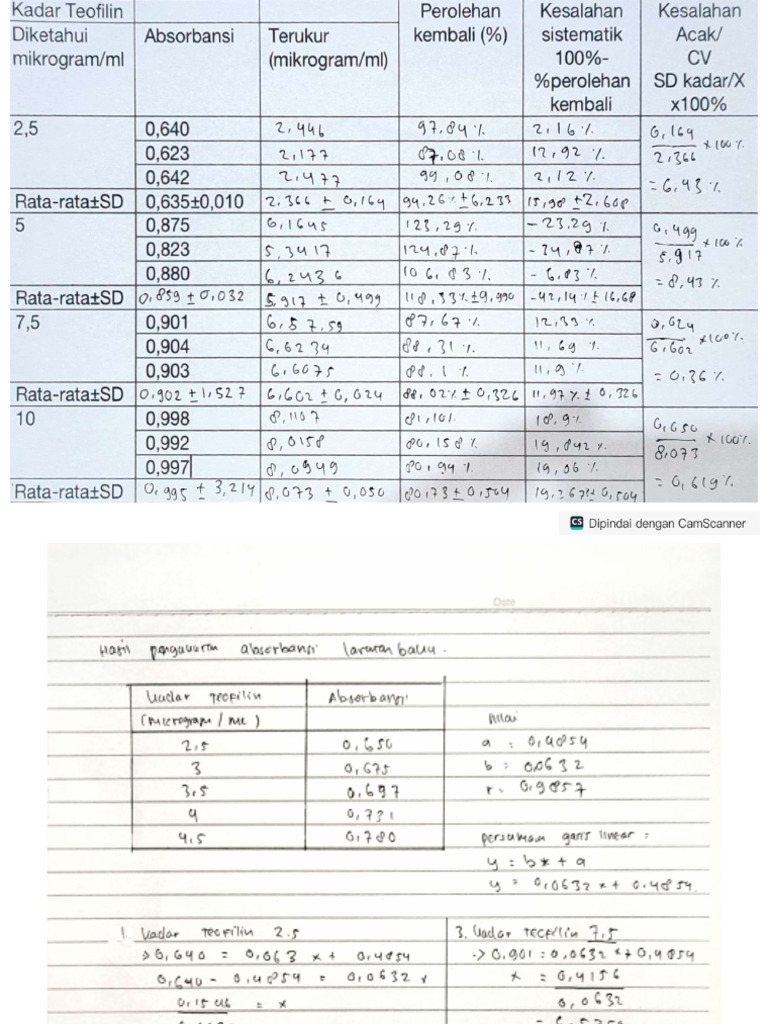 Kadar Teofilin Diketahui mikrogram/ml | Absorbansi | Terukur (mikrogram/ml) | Perolehan kembali (%) | Kesalahan sistematik 100%- %perolehan kembali | Kesalahan Acak/ CV SD kadar/X x100%
2,5 | 0,640 | 2,446 | 97,84 % | 2,16 % | 0,164 / 2,366 x 100 %
0,623 | 2,177 | 87,08 % | 12,92 %
0,642 | 2,477 | 99,08 % | 2,12 % | = 6,93 %
Rata-rata±SD | 0,635±0,010 | 2,366 ± 0,164 | 94,26 % ± 6,233 | 15,98 ± 2,608
5 | 0,875 | 6,1645 | 123,29 % | - 23,29 % | 0,499 / 5,917 x 100 %
0,823 | 5,3417 | 124,87 % | - 24,87 %
0,880 | 6,2436 | 106,83 % | - 6,83 % | = 8,43 %
Rata-rata±SD | 0,859 ± 0,032 | 5,917 ± 0,499 | 118,33% ± 9,990 | -42,14 % ± 16,68
7,5 | 0,901 | 6,57,59 | 87,67 % | 12,33 % | 0,024 / 6,602 x 100%
0,904 | 6,6234 | 88,31 % | 11,69 %
0,903 | 6,6075 | 88,1 % | 11,9 % | = 0,36 %
Rata-rata±SD | 0,902 ± 1,527 | 6,602 ± 0,024 | 88,02 % ± 0,326 | 11,97 % ± 0,326
10 | 0,998 | 8,1107 | 81,101. | 18,9 % | 0,050 / 8,073 x 100%
0,992 | 8,0158 | 80,158 % | 19,842 %
0,997 | 8,0949 | 80,94 % | 19,06 % | = 0,619 %
Rata-rata±SD | 0,995 ± 3,214 | 8,073 ± 0,050 | 80,73 ± 0,504 | 19,267 ± 0,504
CS Dipindai dengan CamScanner
Date
Hasil pengukuran absorbansi larutan baku.
Kadar Teofilin (microgram / mL) | Absorbansi
Nilai
2,5 | 0,650 | a : 0,4854
3 | 0,675 | b : 0,0632
3,5 | 0,697 | r : 0,9857
4 | 0,731
4,5 | 0,780 | persamaan garis linear :
y = bx + a
y = 0,0632 x + 0,4854.
1. Kadar teofilin 2.5
→ 0,640 = 0,063 x + 0,4854
0,640 - 0,4854 = 0,0632 x
0,1546 = x
3. Kadar teofilin 7,5
-> 0.901 = 0,0632 x + 0,4854
x = 0,4156
0,0632